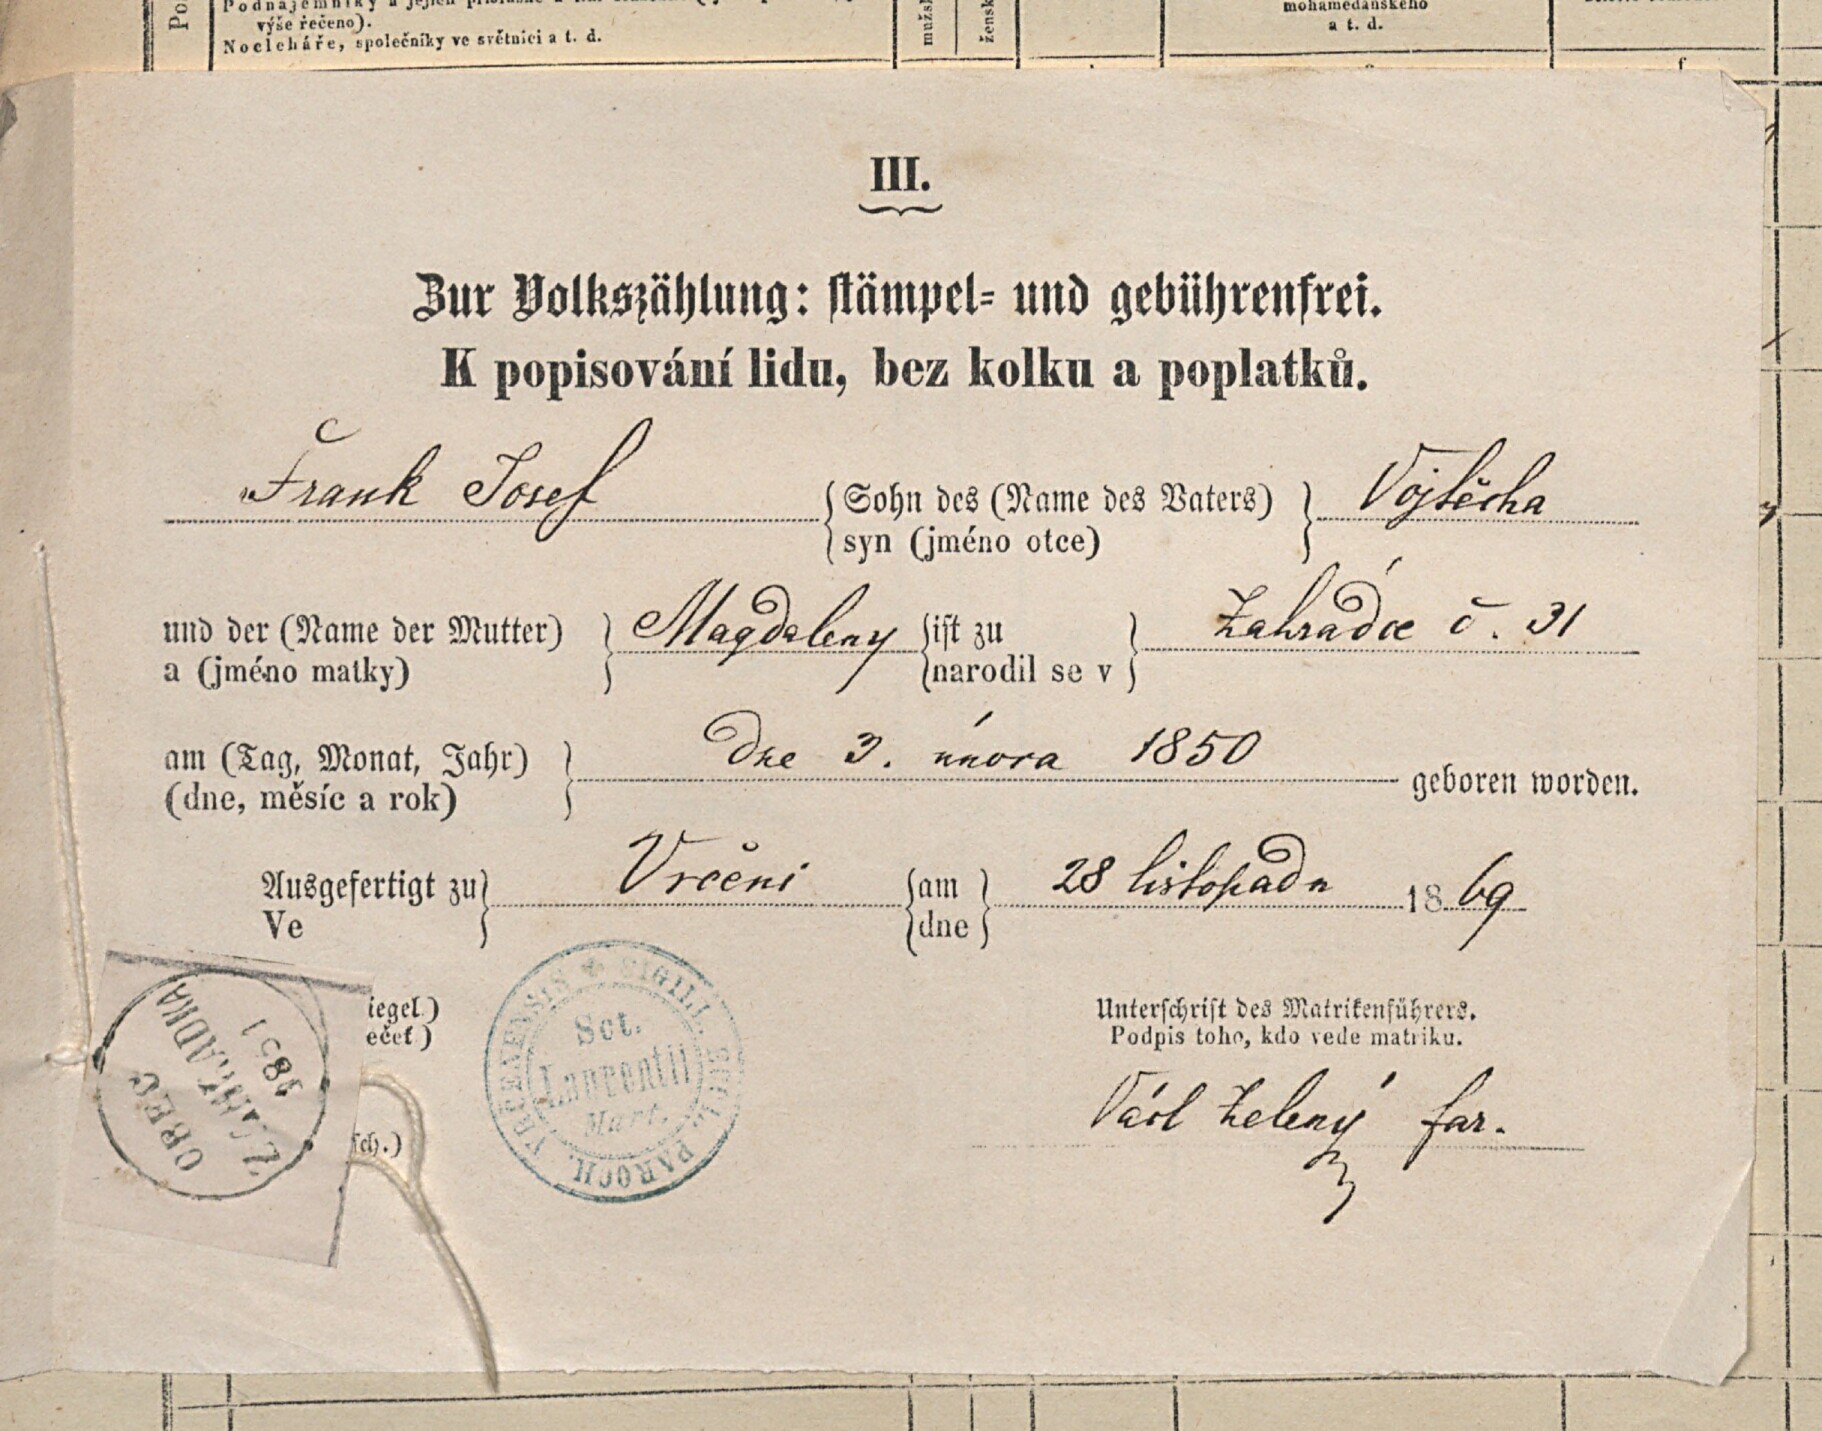 výše řečeno).
Nocleháře, společníky ve světnici a t. d.
mužsk
žensk
mohamedánského
a t. d.
III.
Zur Volkszählung: stämpel- und gebührenfrei.
K popisování lidu, bez kolku a poplatků.
Frank Josef Sohn des (Name des Vaters) Vojtěcha
syn (jméno otce)
und der (Name der Mutter) Magdaleny ist zu Zahrádce č. 31
a (jméno matky) narodil se v
am (Tag, Monat, Jahr) dne 3. února 1850 geboren worden.
(dne, měsíc a rok)
Ausgefertigt zu Vrčeni am 28 listopadu 1869
Ve dne
iegel.)
ečeť)
OBEC
ZAHRADKA
1851
SIGILL. PAROCH.
Sct.
Laurentii
Mart.
sch.)
Unterschrift des Matrikenführers.
Podpis toho, kdo vede matriku.
Václ Zelený far.